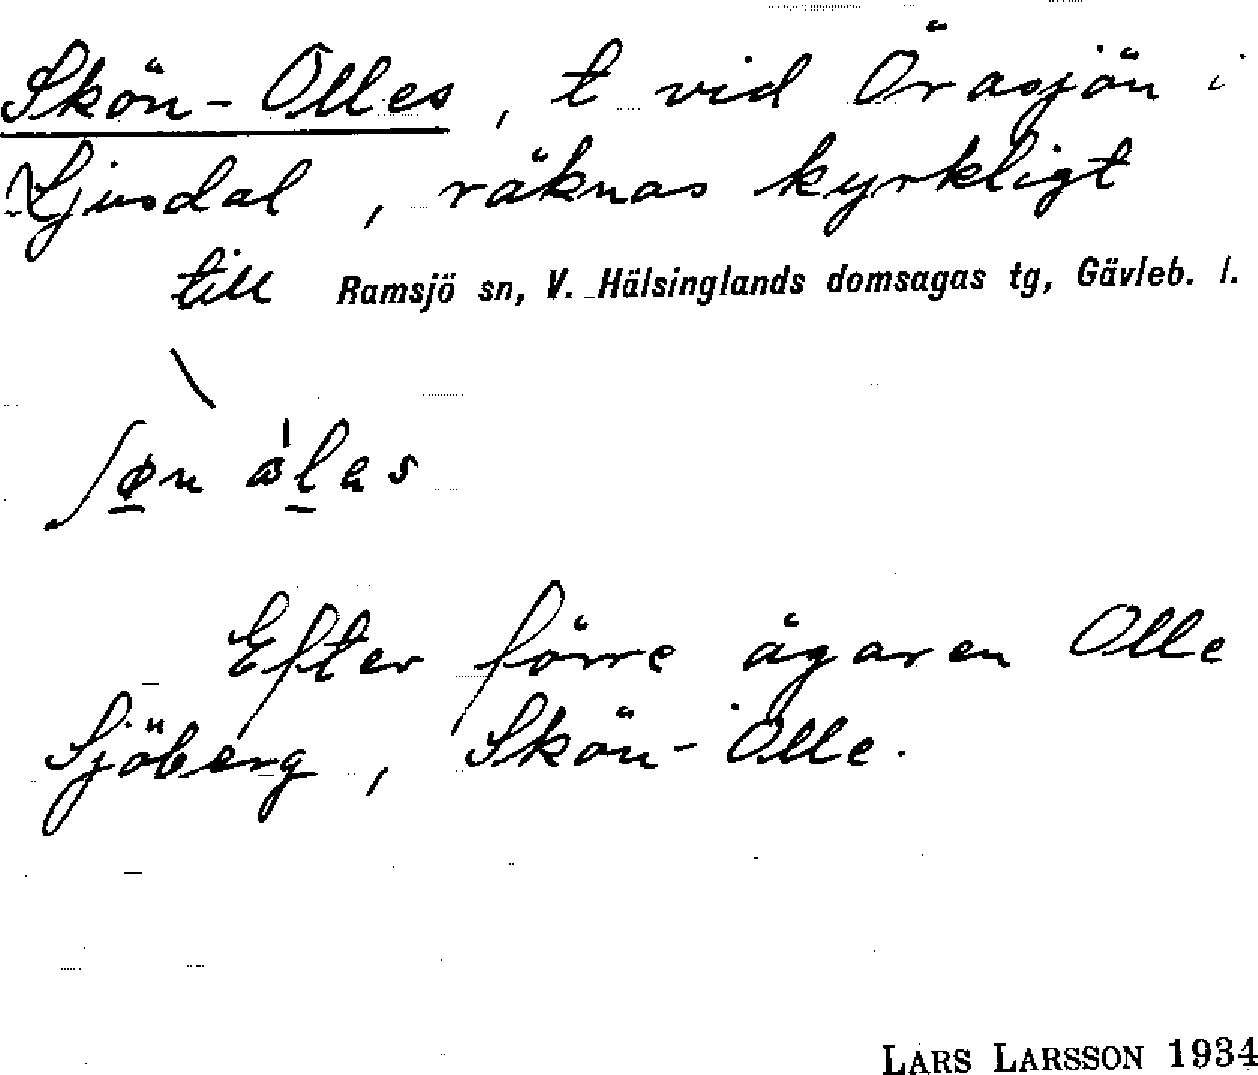 Skön-Olles, t vid Örasjön i
Ljusdal, räknas kyrkligt
till Ramsjö sn, V. Hälsinglands domsagas tg, Gävleb. l.
Efter förre ägaren Olle
Sjöberg, Skön-Olle.
LARS LARSSON 1934